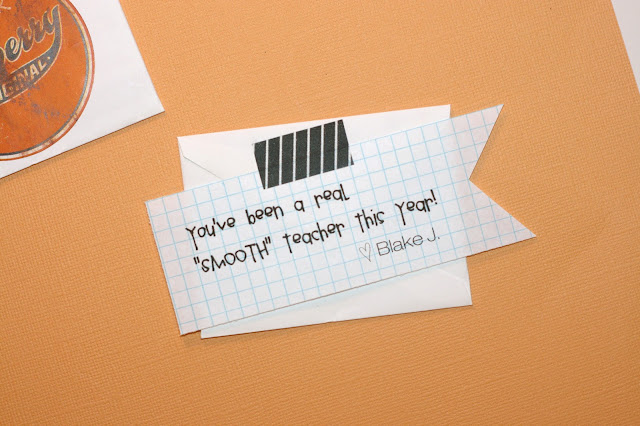 berry
ORIGINAL.
You've been a real
"SMOOTH" teacher this year!
♡ Blake J.